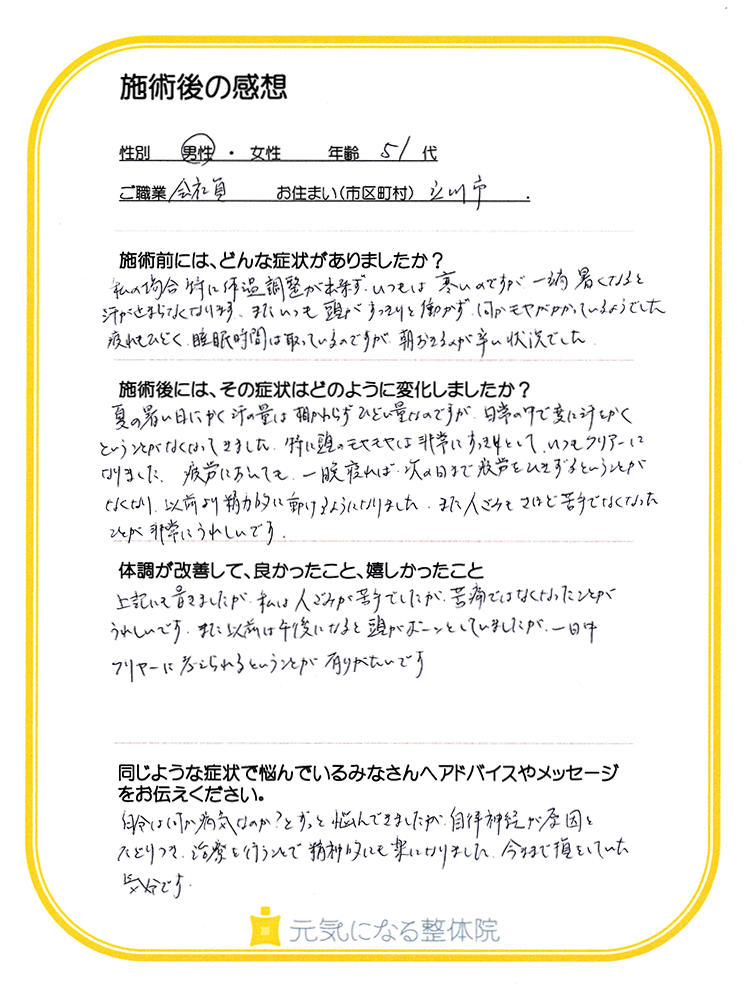 施術後の感想
性別 男性 ・ 女性 年齢 51 代
ご職業 会社員 お住まい(市区町村) 立川市 .
施術前には、どんな症状がありましたか?
私の場合 特に体温調整が出来ず、いつもは 寒いのですが 一納 暑くなると
汗が止まらなくなります。またいつも 頭が すっきりと働かず、何かモヤがかかっているようでした
疲れもひどく、睡眠時間は取っているのですが、朝おきるのが辛い状況でした。
施術後には、その症状はどのように変化しましたか?
夏の暑い日にかく汗の量は 相かわらず ひどい量なのですが、日常の中で変に汗をかく
ということがなくなってきました。特に頭のモヤモヤは非常にすっきりとして、いつもクリアーに
なりました。疲労においても、一晩寝れば、次の日まで疲労をひきずるということが
なくなり、以前より精力的に動けるようになりました。また人ごみもさほど苦手でなくなった
ことが 非常にうれしいです。
体調が改善して、良かったこと、嬉しかったこと
上記にも書きましたが、私は人ごみが苦手でしたが、苦痛ではなくなったことが
うれしいです。また以前は午後になると 頭がボーッとしていましたが、一日中
クリヤーに 考えられるということが 有りがたいです
同じような症状で悩んでいるみなさんへアドバイスやメッセージ
をお伝えください。
自分は何か病気なのか?とずっと 悩んできましたが、自律神経が原因と
たどりつき、治療を行うことで 精神的にも楽になりました。今まで損をしていた
気分です。
元気になる整体院